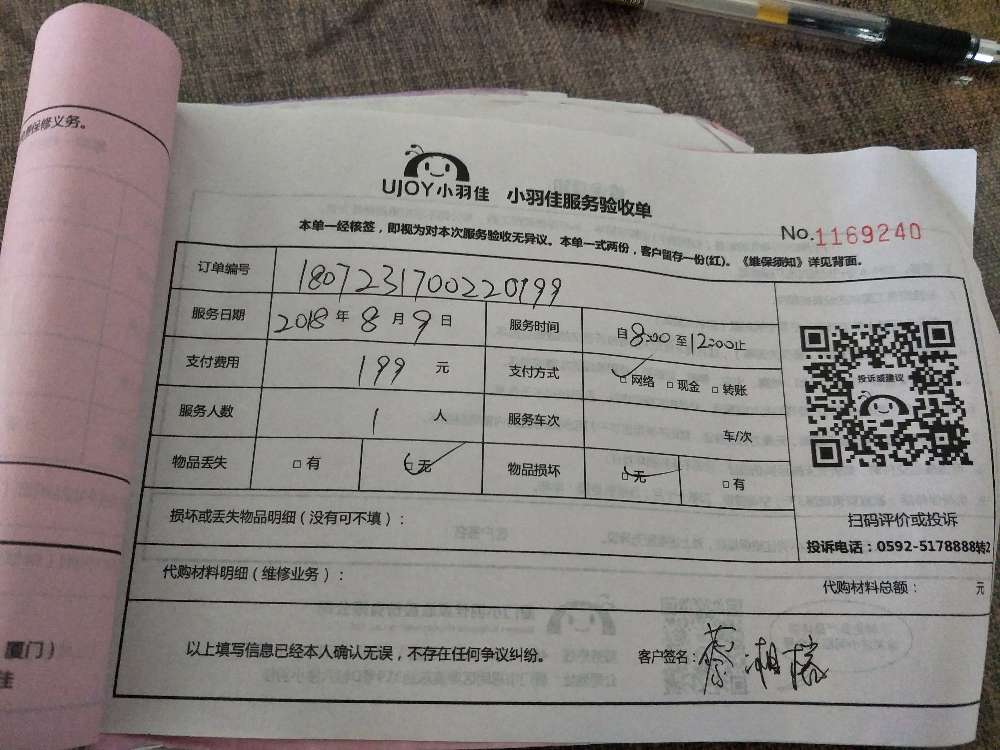 保修义务。
UJOY小羽佳 小羽佳服务验收单
No.1169240
本单一经核签，即视为对本次服务验收无异议。本单一式两份，客户留存一份(红)。《维保须知》详见背面。
订单编号 1807231700220199
服务日期 2018年8月9日 服务时间 自8:00至12:00止
支付费用 199元 支付方式 □网络 □现金 □转账
服务人数 1人 服务车次 车/次
物品丢失 □有 □无 物品损坏 □无 □有
投诉或建议
扫码评价或投诉
投诉电话：0592-5178888转2
损坏或丢失物品明细（没有可不填）：
代购材料明细（维修业务）： 代购材料总额： 元
以上填写信息已经本人确认无误，不存在任何争议纠纷。 客户签名：蔡相
厦门）
佳